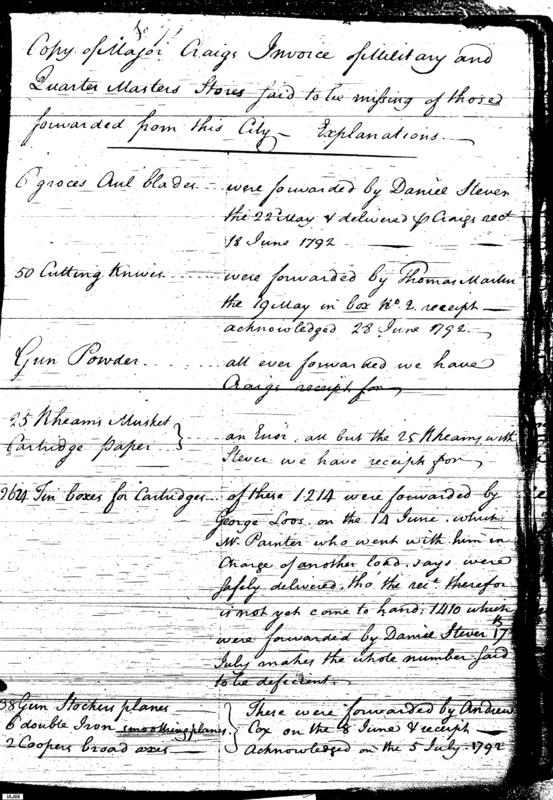 Copy of Major Craigs Invoice of Military and
Quarter Masters Stores said to be missing of those
forwarded from this City — Explanations —
6 groces Aul blades were forwarded by Daniel Stever
the 22 May & delivered Craigs rect
18 June 1792
50 Cutting Knives were forwarded by Thomas Martin
the 19 May in box No. 2. receipt —
acknowledged 28 June 1792
Gun Powder all ever forwarded we have
Craigs receipt for
25 Rheams Musket
Cartridge paper } an Error. all but the 25 Rheams with
Stever we have receipt for
2624 Tin boxes for Cartridges of these 1214 were forwarded by
George Loos. on the 14 June. which
Mr. Painter who went with him in
Charge of another load, says were
safely delivered, tho' the rect. therefor
is not yet come to hand; 1410 which
were forwarded by Daniel Stever 17
July makes the whole number said
to be deficient.
38 Gun Stockers planes
6 double Iron smoothing planes
2 Coopers broad axes } These were forwarded by Andrew
Cox on the 8 June & receipt —
Acknowledged on the 5 July 1792
IAJ66